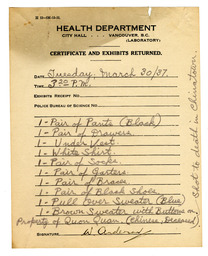 HEALTH DEPARTMENT
CITY HALL . . . VANCOUVER, B.C.
(LABORATORY)
CERTIFICATE AND EXHIBITS RETURNED.
DATE Tuesday, March 30/37.
TIME 3:20 P.M.
EXHIBITS RECEIPT NO.
POLICE BUREAU OF SCIENCE NO.
1 - Pair of Pants (Black)
1 - Pair of Drawers.
1 - Under Vest.
1 - White Shirt.
1 - Pair of Socks.
1 - Pair of Garters.
1 - Pair of Braces
1 - Pair of Black Shoes.
1 - Pull Over Sweater (Blue)
1 - Brown Sweater with Buttons on
Property of Quon Quan. (Chinese, Deceased).
SIGNATURE
Shot to death in Chinatown